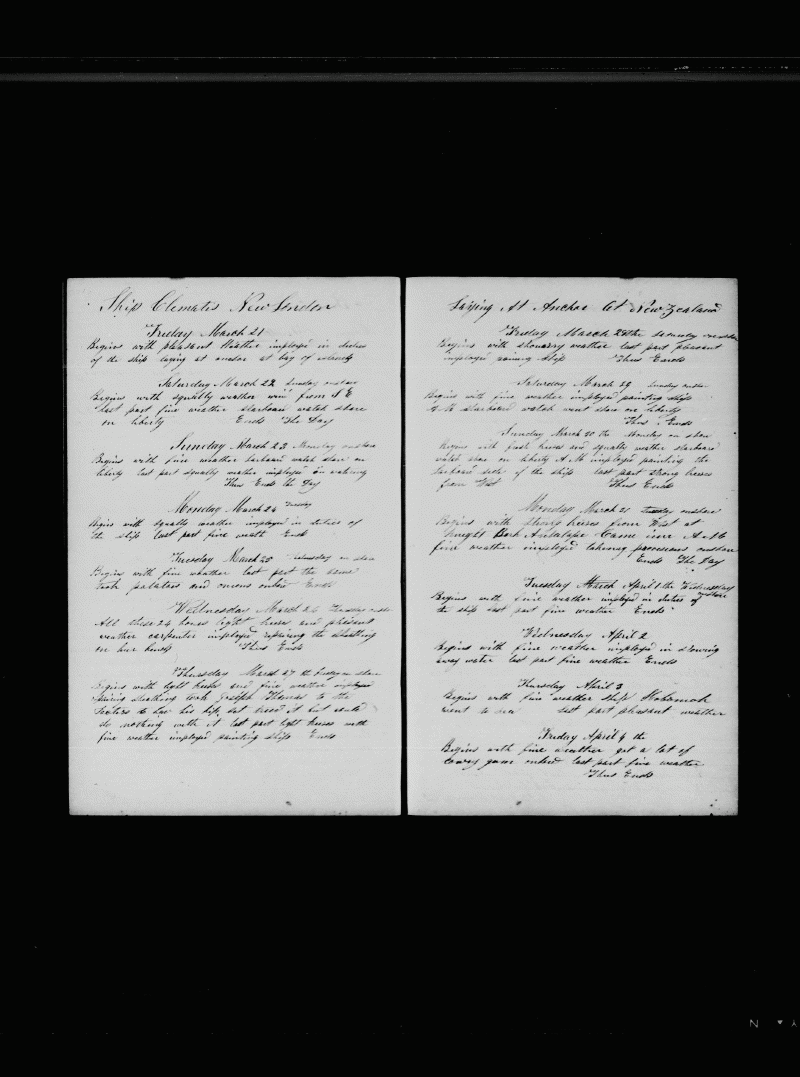 Ship Clematis New London
Friday March 21
Begins with pleasant Weather imployed in duties
of the ship laying at anchor at bay of
Saturday March 22 Sunday onshore
Begins with squally weather wind from S E
last part fine weather starboard watch shore
on liberty Ends The Day
Sunday March 23 Monday onshore
Begins with fine weather larboard watch shore on
liberty last part squally weather imployed in watering
Thus Ends the Day
Monday March 24 Tuesday
Begins with squally weather imployed in duties of
the ship last part fine weath End
Tuesday March 25 Wednesday on shore
Begins with fine weather last part the same
took potatoes and onions onbord Ends
Wednesday March 26 Thursday onshore
All these 24 hours light breses and plesent
weather carpenter imployed repairing the sheathing
on her bends Thus Ends
Thursday March 27 th Friday on shore
Begins with light breses and fine weather imployed
sheathing took Joseph Thomas to the
Doctors to have his set it but could
do nothing with it last part light breses with
fine weather imployed painting ship Ends
Laying At Anchor At New Zealand
Friday March 28 the Saturday onshore
Begins with showery weather last part plesant
imployed paining ship Thus Ends
Saturday March 29 Sunday onshore
Begins with fine weather imployed painting ship
A M Starboard watch went shore on liberty
Thus Ends
Sunday March 30 the Monday on shore
Begins with fresh breses and squally weather starboard
watch shore on liberty A M imployed painting the
larboard side of the ship last part strong breses
from West Thus Ends
Monday March 31 Tuesday onshore
Begins with strong breses from West at
night Bark Antalope Came in A M
fine weather imployed takeing onshore
Ends The Day
Tuesday March April 1 the Wednesday
onshore
Begins with fine weather imployed in duties of
the ship last part fine weather Ends
Wednesday April 2
Begins with fine weather imployed in stowing
away water last part fine weather Ends
Thursday April 3
Begins with fine weather ship
went to sea last part plesant weather
Friday April 4 the
Begins with fine weather got a lot of
gum onbord last part fine weather
Thus Ends